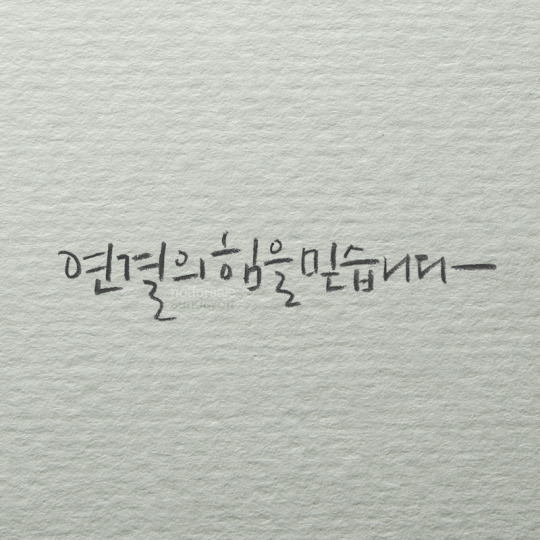 연결의 힘을 믿습니다